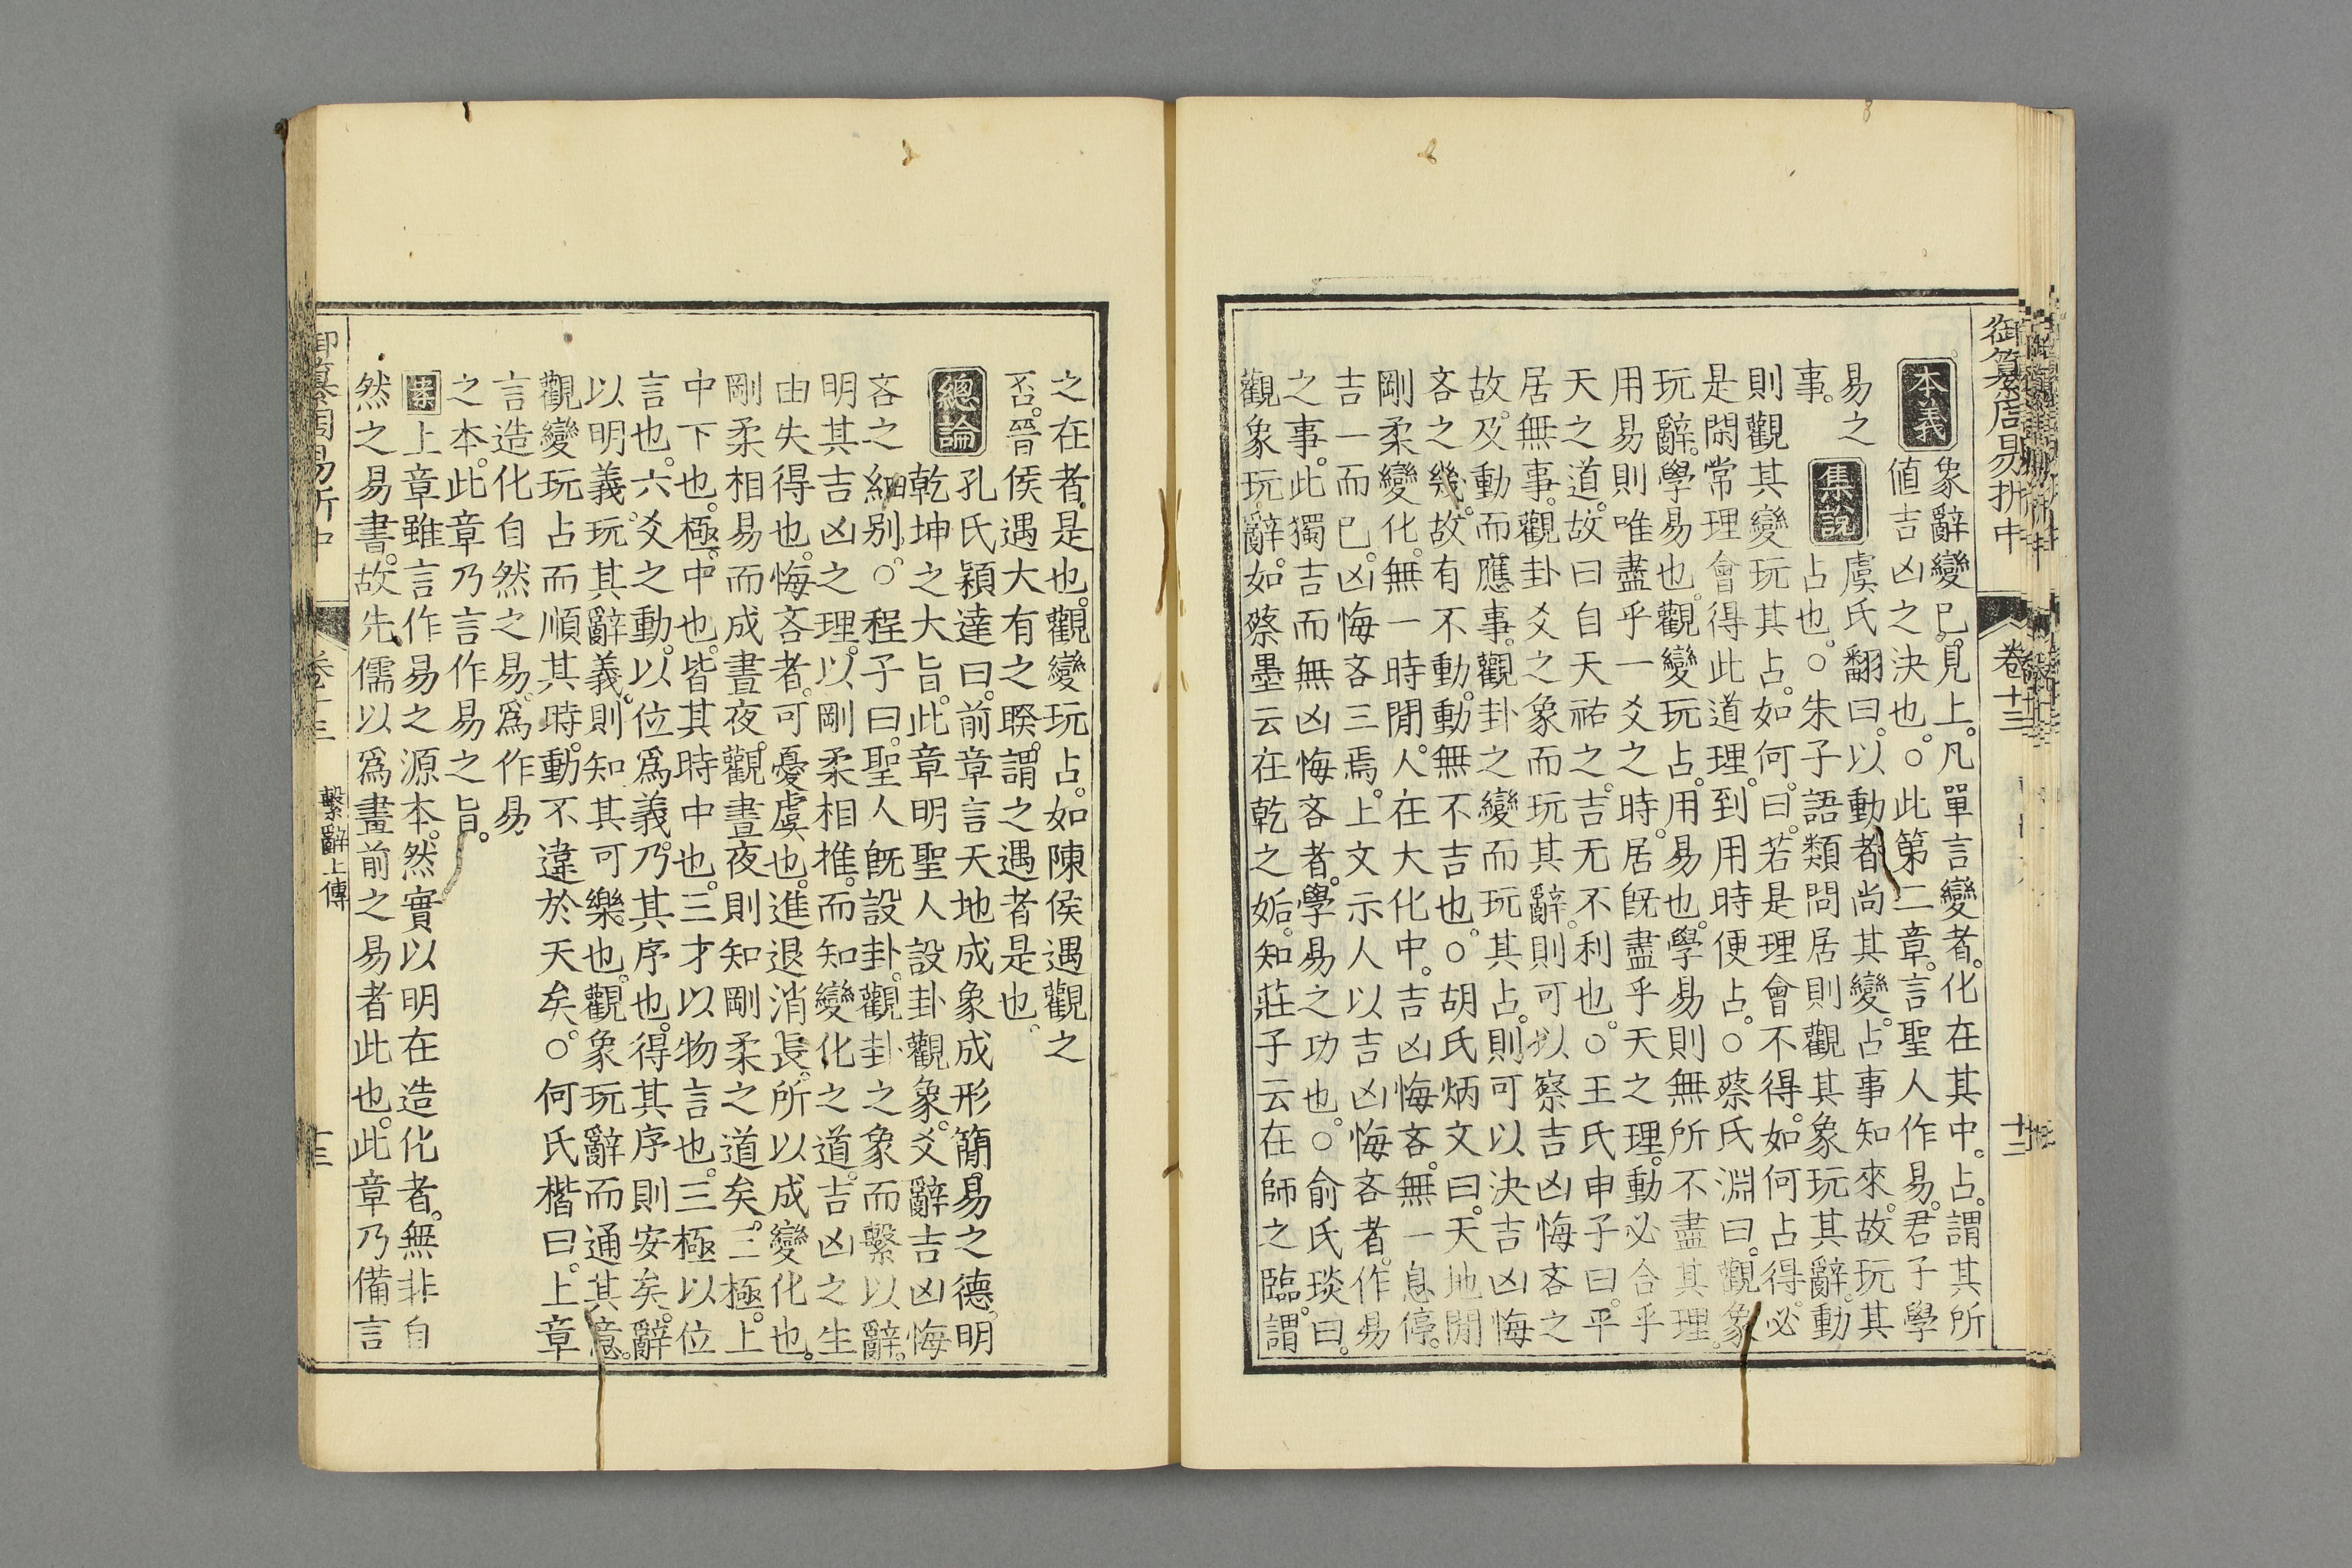 御纂周易折中
卷十三
十二
本義
象辭變已見上。凡單言變者。化在其中。占。謂其所
值吉凶之決也。○此第二章。言聖人作易。君子學
易之
事。
集說
虞氏翻曰。以動者尚其變。占事知來。故玩其
占也。○朱子語類問居則觀其象玩其辭。動
則觀其變玩其占。如何。曰。若是理會不得。如何占得。必
是閑常理會得此道理。到用時便占。○蔡氏淵曰。觀象
玩辭。學易也。觀變玩占。用易也。學易則無所不盡其理。
用易則唯盡乎一爻之時。居旣盡乎天之理。動必合乎
天之道。故曰自天祐之。吉无不利也。○王氏申子曰。平
居無事。觀卦爻之象而玩其辭。則可以察吉凶悔吝之
故。及動而應事。觀卦之變而玩其占。則可以決吉凶悔
吝之幾。故有不動。動無不吉也。○胡氏炳文曰。天地閒
剛柔變化。無一時閒。人在大化中。吉凶悔吝。無一息停。
吉一而已。凶悔吝三焉。上文示人以吉凶悔吝者。作易
之事。此獨吉而無凶悔吝者。學易之功也。○俞氏琰曰。
觀象玩辭。如蔡墨云在乾之姤。知莊子云在師之臨。謂
之在者。是也。觀變玩占。如陳侯遇觀之
否。晉侯遇大有之睽。謂之遇者是也。
總論
孔氏穎達曰。前章言天地成象成形簡易之德。明
乾坤之大旨。此章明聖人設卦觀象。爻辭吉凶悔
吝之細别。○程子曰。聖人旣設卦。觀卦之象而繫以辭。
明其吉凶之理。以剛柔相推。而知變化之道。吉凶之生
由失得也。悔吝者。可憂虞也。進退消長。所以成變化也。
剛柔相易而成晝夜。觀晝夜則知剛柔之道矣。三極。上
中下也。極。中也。皆其時中也。三才以物言也。三極以位
言也。六爻之動。以位爲義。乃其序也。得其序則安矣。辭
以明義。玩其辭義。則知其可樂也。觀象玩辭而通其意。
觀變玩占而順其時。動不違於天矣。○何氏楷曰。上章
言造化自然之易。爲作易
之本。此章乃言作易之旨。
案上章雖言作易之源本。然實以明在造化者。無非自
然之易書。故先儒以爲畫前之易者此也。此章乃備言
卷十三
繫辭上傳
十三